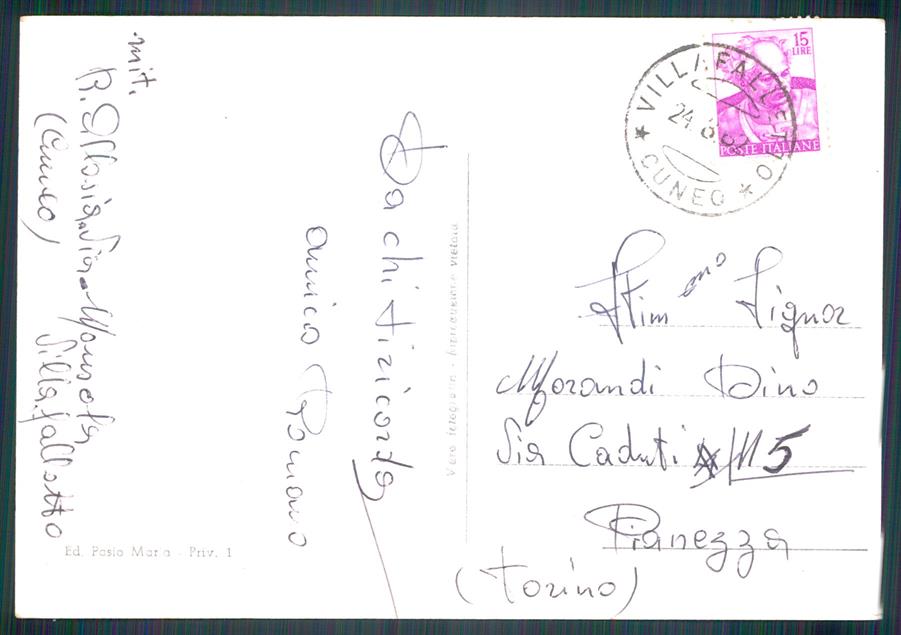 mit.
R. Allasia Via Monsola
Villafalletto
(Cuneo)
Da chi ti ricorda
amico Romano
Vera fotografia - riproduzione vietata
Ed. Pasio Maria - Priv. 1
15
LIRE
POSTE ITALIANE
VILLAFALLETTO
24. 8.
CUNEO
Stim mo Signor
Morandi Dino
Via Caduti 5
Pianezza
(Torino)